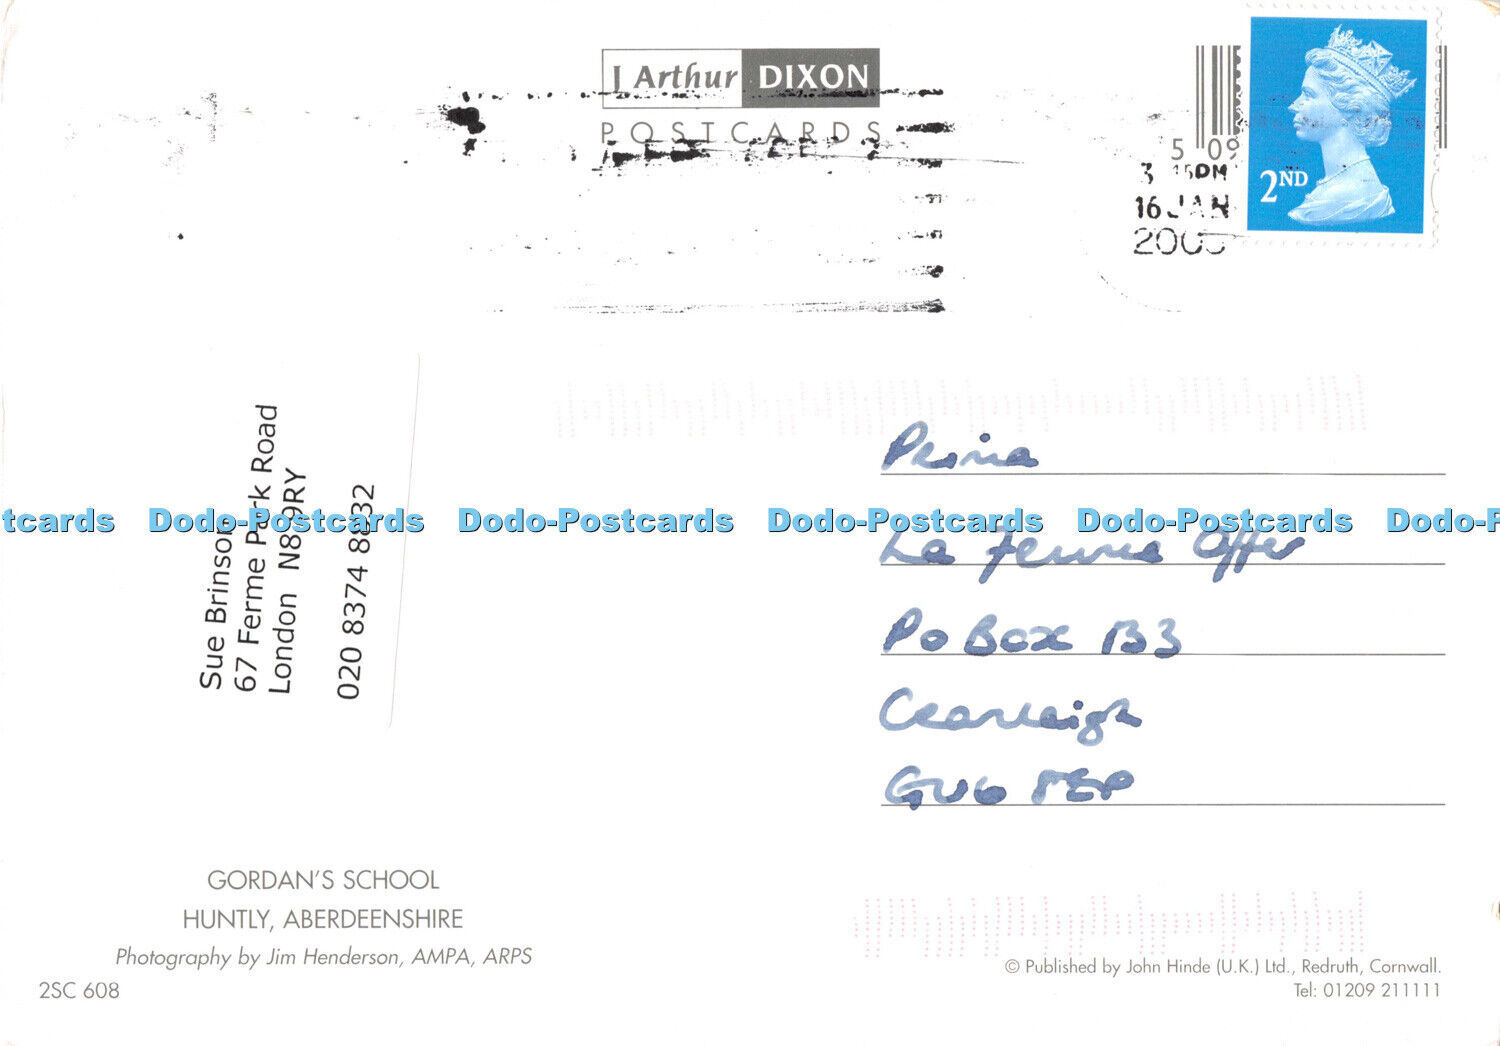 J Arthur DIXON
POSTCARDS
5 09
3 15PM
16 JAN
2ND
Sue Brinson
67 Ferme Park Road
London N89RY
020 8374 8832
Prima
La Femme Offer
PO Box 133
Cranleigh
GU6
tcards Dodo-Postcards Dodo-Postcards Dodo-Postcards Dodo-Postcards Dodo-P
GORDAN'S SCHOOL
HUNTLY, ABERDEENSHIRE
Photography by Jim Henderson, AMPA, ARPS
2SC 608
© Published by John Hinde (U.K.) Ltd., Redruth, Cornwall.
Tel: 01209 211111